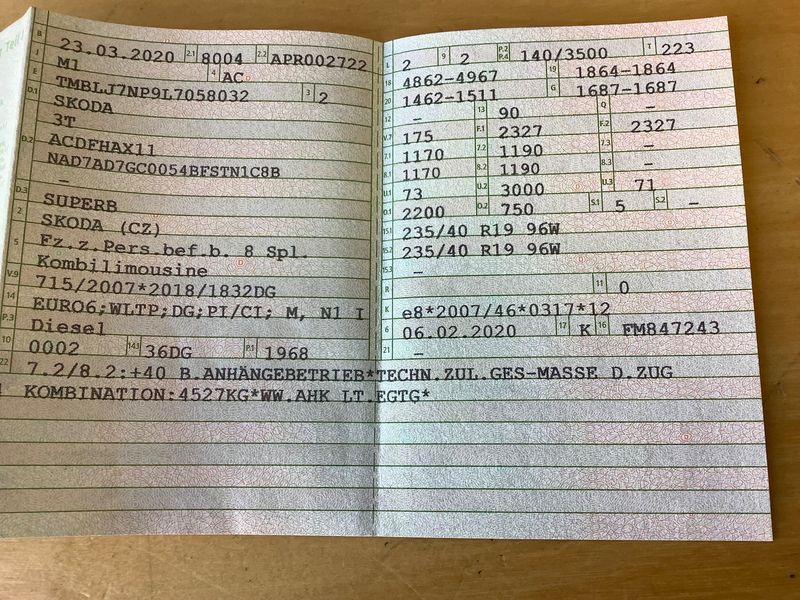 B 23.03.2020 2.1 8004 2.2 APR002722
J M1 4 AC
E TMBLJ7NP9L7058032 3 2
D.1 SKODA
3T
D.2 ACDFHAX11
NAD7AD7GC0054BFSTN1C8B
–
D.3 SUPERB
2 SKODA (CZ)
5 Fz.z.Pers.bef.b. 8 Spl.
Kombilimousine
V.9 715/2007*2018/1832DG
14 EURO6;WLTP;DG;PI/CI; M, N1 I
P.3 Diesel
10 0002 14.1 36DG P.1 1968
L 2 9 2 P.2 P.4 140/3500 T 223
18 4862-4967 19 1864-1864
20 1462-1511 G 1687-1687
12 – 13 90 Q –
V.7 175 F.1 2327 F.2 2327
7.1 1170 7.2 1190 7.3 –
8.1 1170 8.2 1190 8.3 –
U.1 73 U.2 3000 U.3 71
O.1 2200 O.2 750 S.1 5 S.2 –
15.1 235/40 R19 96W
15.2 235/40 R19 96W
15.3 –
R 11 0
K e8*2007/46*0317*12
6 06.02.2020 17 K 16 FM847243
21 –
22 7.2/8.2:+40 B.ANHÄNGEBETRIEB*TECHN.ZUL.GES-MASSE D.ZUG
KOMBINATION:4527KG*WW.AHK LT.EGTG*